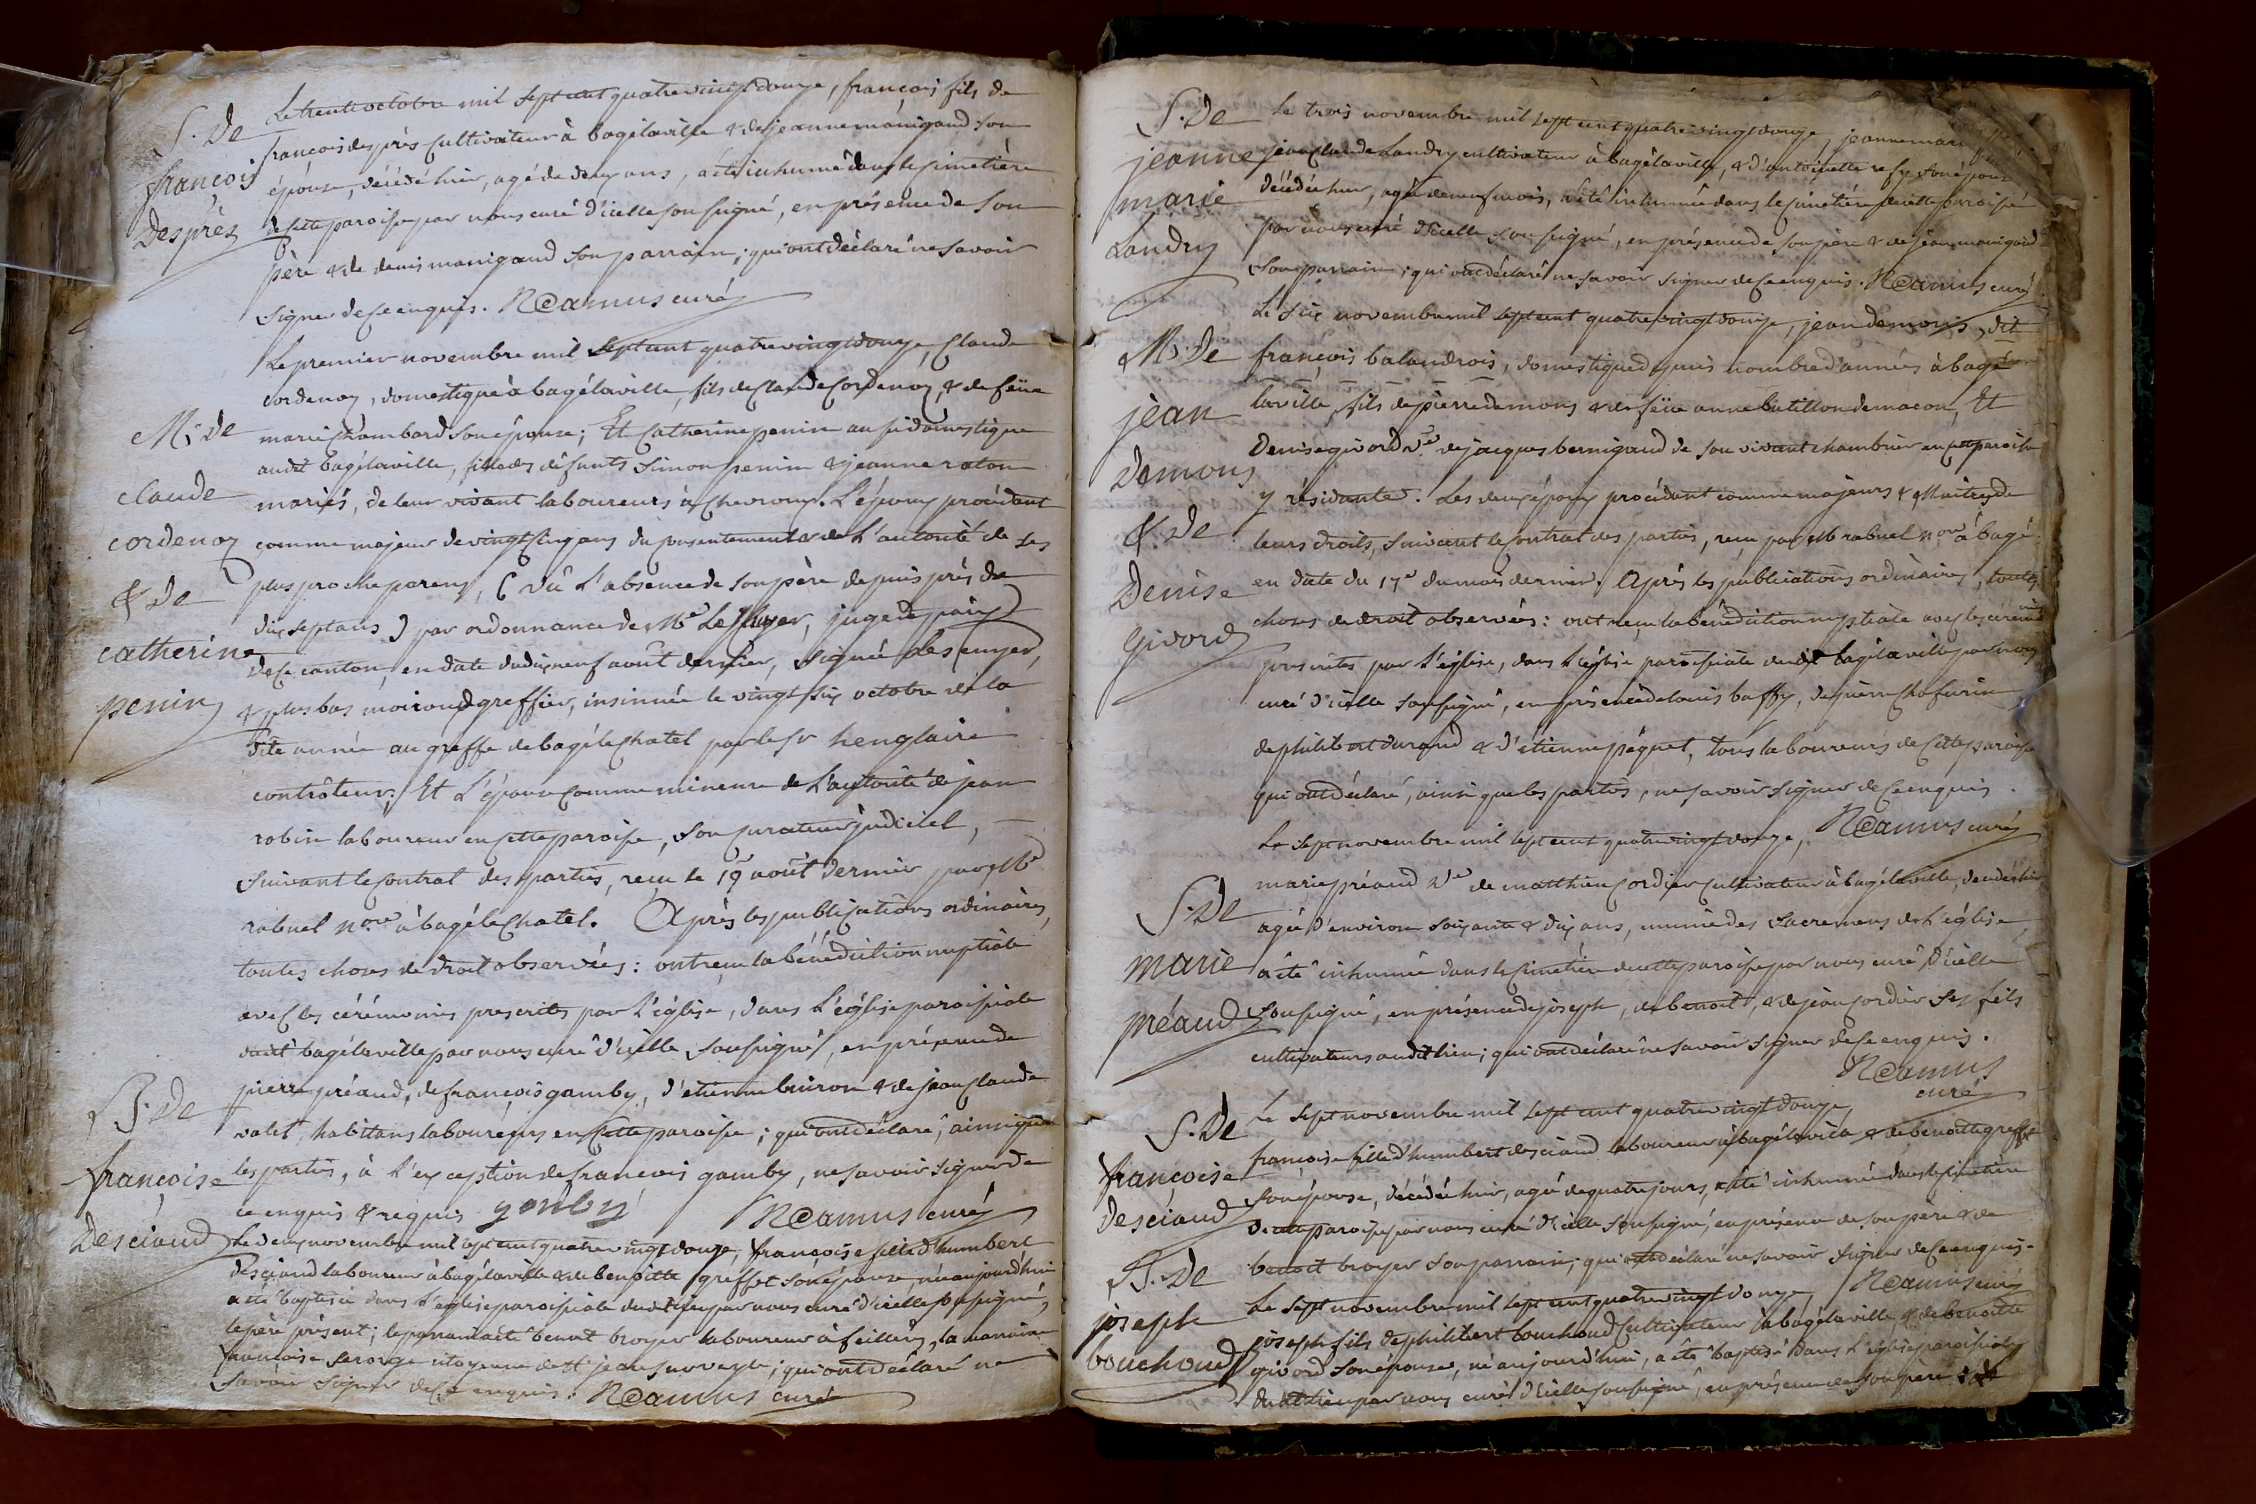 S. De
françois
Desprès
Le trente octobre mil sept cent quatrevingt douze, françois fils de
francois desprès Cultivateur à bagélaville & de jeanne manigaud son
épouse, décédé hier, agé de deux ans, a été inhumé dans le cimetière
de cette paroisse par nous curé d'icelle soussigné, en présence de son
père & de denis manigaud son parrain; qui ont déclaré ne savoir
signer de ce enquis. NCamus curé
M. De
claude
cordenoz
& De
catherine
penin
Le premier novembre mil sept cent quatrevingt douze, Claude
cordenoz, domestique à bagélaville, fils de Claude Cordenoz, & de feüe
marie Chambard son épouse; Et Catherine penin aussi domestique
audit bagélaville, fille des défunts Simon penin & jeanne raton
mariés, de leur vivant laboureurs à Chevroux. L'époux procédant
comme majeur de vingt Cinq ans du consentement & de L'autorité de ses
plus proche parens, (vû L'absence de son père depuis près de
dix sept ans) par ordonnance de Mr juge de paix
de Ce canton, en date du dix neuf août dernier, signée
& plus bas moiroud greffier, insinuée le vingt six octobre de la
dite année au greffe de bagéleChatel par le sr henglaire
contrôleur; Et L'épouse comme mineure de L'autorité de jean
robin laboureur en Cette paroisse, son curateur judiciel,
suivant le Contrat des parties, reçu le 19 août dernier par Me
rabuel nore à bagéleChatel. Après les publications ordinaires,
toutes choses de droit observées: ont reçu la bénédiction nuptiale
avec les cérémonies prescrites par L'église, dans L'église paroissiale
dudit bagélaville par nous curé d'icelle soussigné, en présence de
pierre préaud, de françois gamby, d'étienne buiron & de jean Claude
valet, habitans laboureurs en Cette paroisse; qui ont déclaré, ainsi que
les parties, à L'exception de francois gamby, ne savoir signer de
ce enquis & requis gonby NCamus curé
B. De
françoise
Desciaud
Le deux novembre mil sept cent quatrevingt douze, françoise fille d'humbert
desciaud laboureur à bagélaville & de benoitte greffet son épouse, née aujourd'hui
a été baptisée dans L'église paroissiale dudit lieu par nous curé d'icelle soussigné,
le père présent; le parrain a été benoit broyer laboureur à feillens, la marraine
francoise citoyenne de St jean sur veyle; qui ont déclaré ne
savoir signer de Ce enquis. NCamus curé
S. De
jeanne
marie
Landry
Le trois novembre mil sept cent quatre vingt douze, jeanne marie
jean Claude Landry cultivateur à bagélaville, & d'antoinette son épouse
décédée hier, agée de neuf mois, a été inhumée dans le cimetière de cette paroisse
par nous curé d'icelle soussigné, en présence de son père & de jean manigaud
son parrain; qui ont déclaré ne savoir signer de Ce enquis. NCamus curé
M. De
jean
Demons
& De
Denise
Givord
Le six novembre mil sept cent quatre vingt douze, jean demons, dit
françois balandrois, domestique depuis nombre d'années à bagé
laville, fils de pierre demons & de feüe anne butillon de macon, Et
Denise givord ve de jacques bernigaud de son vivant chambrier en cette paroisse
y résidante. Les deux époux procédant comme majeurs & Maitres de
leurs droits, suivant le Contrat des parties, reçu par Me rabuel nore à bagé
en date du 17e du mois dernier. Après les publications ordinaires, toutes
choses de droit observées: ont reçu la bénédiction nuptiale avec les cérémonies
prescrites par L'église, dans L'église paroissiale dudit bagélaville par nous
curé d'icelle soussigné, en présence de louis baffy, de pierre
de philibert durand & d'étienne péquet, tous laboureurs de Cette paroisse
qui ont déclaré, ainsi que les parties, ne savoir signer de Ce enquis.
NCamus curé
S. De
marie
préaud
Le sept novembre mil sept cent quatre vingt douze,
marie préaud ve de matthieu Cordier Cultivateur à bagélaville, décédée hier
agée d'environ soixante & dix ans, munie des sacremens de L'église
a été inhumée dans le Cimetière de cette paroisse par nous curé d'icelle
soussigné, en présence de joseph, de benoit, & de jean Cordier ses fils
cultivateurs audit lieu; qui ont déclaré ne savoir signer de Ce enquis.
NCamus
curé
S. De
françoise
desciaud
Le sept novembre mil sept cent quatre vingt douze
françoise fille d'humbert desciaud laboureur à bagélaville & de benoitte greffet
son épouse, décédée hier, agée de quatre jours, a été inhumée dans le cimetière
de cette paroisse par nous curé d'icelle soussigné, en présence de son père & de
benoit broyer son parrain; qui ont déclaré ne savoir signer de Ce enquis.
NCamus curé
B. De
joseph
bouchoud
Le sept novembre mil sept cent quatrevingt douze
joseph fils de philibert bouchoud Cultivateur à bagélaville & de benoitte
givord son épouse, né aujourd'hui, a été baptisé dans L'église paroissiale
dudit lieu par nous curé d'icelle soussigné, en présence de son père